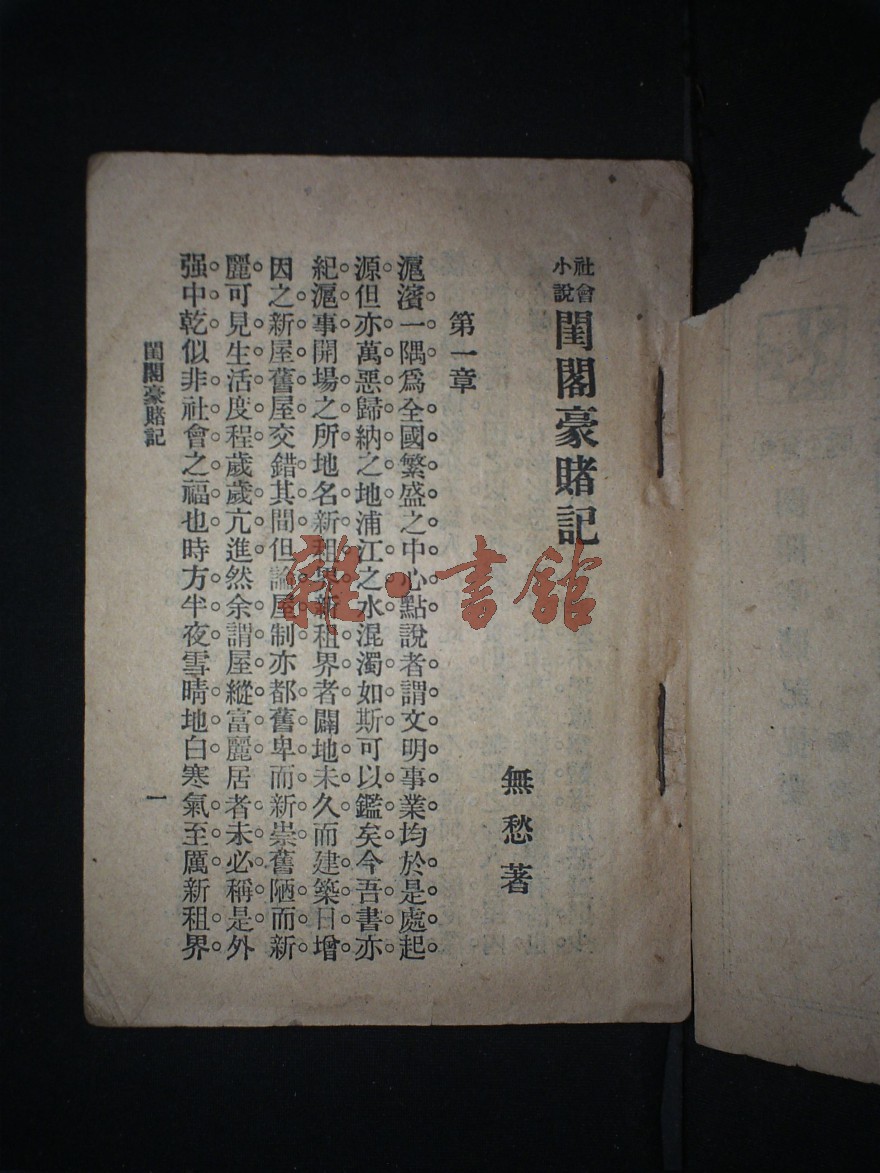 社會小說 閨閣豪賭記
無愁著
第一章
滬濱一隅爲全國繁盛之中心點說者謂文明事業均於是處起
源但亦萬惡歸納之地浦江之水混濁如斯可以鑑矣今吾書亦
紀滬事開場之所地名新租界新租界者闢地未久而建築日增
因之新屋舊屋交錯其間但論屋制亦都舊卑而新崇舊陋而新
麗可見生活度程歲歲亢進然余謂屋縱富麗居者未必稱是外
强中乾似非社會之福也時方半夜雪晴地白寒氣至厲新租界
閨閣豪賭記
一
雜·書館